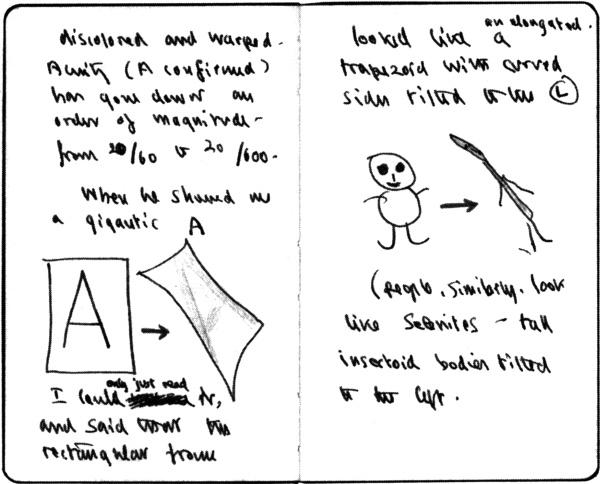 discolored and warped.
Acuity (A confirmed)
has gone down an
order of magnitude -
from 20/60 to 20/600.
When he showed me
a gigantic A
A
only just read
I could it,
and said that the
rectangular frame
an elongated
looked like a
trapezoid with curved
sides tilted to the L
(People, similarly, look
like Selenites - tall
insectoid bodies tilted
to the left.